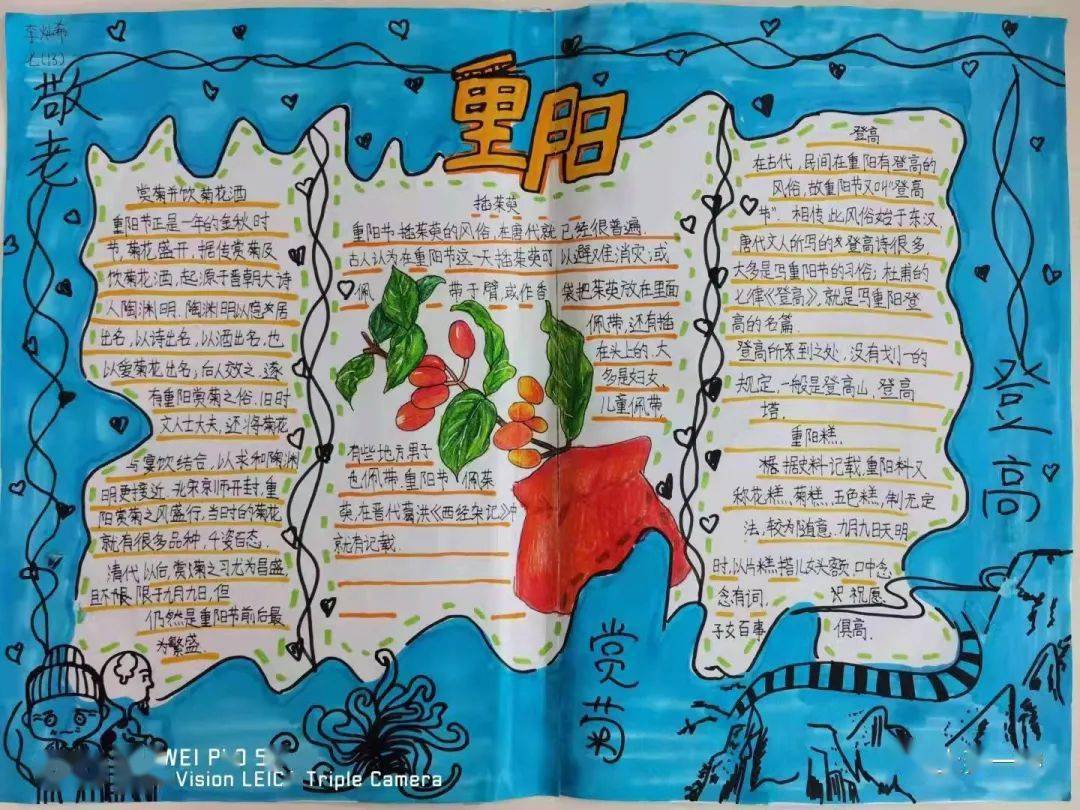 七(13)
敬老
重阳
赏菊并饮菊花酒
重阳节正是一年的金秋时
节,菊花盛开,据传赏菊及
饮菊花酒,起源于晋朝大诗
人陶渊明.陶渊明以隐居
出名,以诗出名,以酒出名,也
以爱菊花出名,后人效之,遂
有重阳赏菊之俗.旧时
文人士大夫,还将菊花
与宴饮结合,以求和陶渊
明更接近.北宋京师开封,重
阳赏菊之风盛行,当时的菊花
就有很多品种,千姿百态.
清代以后,赏菊之习尤为昌盛,
且不限于九月九日,但
仍然是重阳节前后最
为繁盛.
插茱萸
重阳节插茱萸的风俗,在唐代就已经很普遍.
古人认为在重阳节这一天插茱萸可以避难消灾;或
佩带于臂,或作香袋把茱萸放在里面
佩带,还有插
在头上的.大
多是妇女、
儿童佩带
有些地方男子
也佩带.重阳节佩茱
萸,在晋代葛洪《西经杂记》中
就有记载.
登高
在古代,民间在重阳有登高的
风俗,故重阳节又叫“登高
节”.相传此风俗始于东汉,
唐代文人所写的登高诗很多,
大多是写重阳节的习俗;杜甫的
七律《登高》,就是写重阳登
高的名篇.
登高所到之处,没有划一的
规定,一般是登高山、登高
塔.
重阳糕.
据史料记载,重阳料又
称花糕、菊糕、五色糕,制无定
法,较为随意.九月九日天明
时,以片糕搭儿女头额,口中念
念有词,祝愿
子女百事俱高.
登高
赏菊
WEI
Vision LEIC Triple Camera